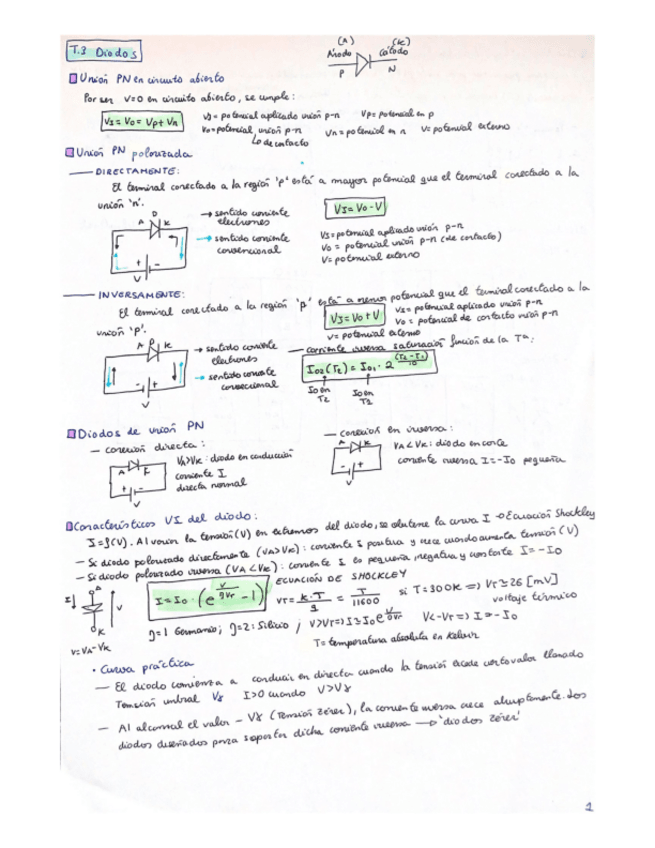 T.3 Diodos
(A) (K)
Ánodo Cátodo
P N
Unión PN en circuito abierto
Por ser V=0 en circuito abierto, se cumple:
VJ = Vo = Vp + Vn
VJ = potencial aplicado unión p-n Vp = potencial en p
Vo = potencial unión p-n Vn = potencial en n V = potencial externo
↳ de contacto
Unión PN polarizada
— DIRECTAMENTE:
El terminal conectado a la región 'p' está a mayor potencial que el terminal conectado a la
unión 'n'.
D
A K
→ sentido corriente
electrones
→ sentido corriente
convencional
+ -
V
VJ = Vo - V
VJ = potencial aplicado unión p-n
Vo = potencial unión p-n (de contacto)
V = potencial externo
— INVERSAMENTE:
El terminal conectado a la región 'p' está a menor potencial que el terminal conectado a la
unión 'p'.
VJ = Vo + V
VJ = potencial aplicado unión p-n
Vo = potencial de contacto unión p-n
V = potencial externo
D
A K
→ sentido corriente
electrones
→ sentido corriente
convencional
- +
V
— corriente inversa saturación función de la Tª:
Io2 (T2) = Io1 · 2^((T2 - T1)/10)
Io en
T2
Io en
T1
Diodos de unión PN
— conexión directa:
A K
+ -
V
VA>VK: diodo en conducción
corriente I
directa normal
— conexión en inversa:
A K
- +
V
VA<VK: diodo en corte
corriente inversa I=-Io pequeña
Características VI del diodo:
I=f(V). Al variar la tensión (V) en extremos del diodo, se obtiene la curva I → Ecuación Shockley
— Si diodo polarizado directamente (VA>VK): corriente I positiva y crece cuando aumenta tensión (V)
— Si diodo polarizado inversa (VA<VK): corriente I es pequeña, negativa y constante I = -Io
ECUACIÓN DE SHOCKLEY
I↓ A V K
V=VA-VK
I = Io · (e^(V/ηVT) - 1)
VT = K·T/q = T/11600 si T=300K ⇒ VT≃26 [mV]
voltaje térmico
η=1 Germanio; η=2: Silicio; V>VT ⇒ I≃Io e^(V/ηVT) V<-VT ⇒ I≃-Io
T = temperatura absoluta en Kelvin
· Curva práctica
— El diodo comienza a conducir en directa cuando la tensión excede cierto valor llamado
Tensión umbral Vγ I>0 cuando V>Vγ
— Al alcanzar el valor -Vγ (Tensión zéner), la corriente inversa crece abruptamente. Los
diodos diseñados para soportar dicha corriente inversa → 'diodos zéner'
1